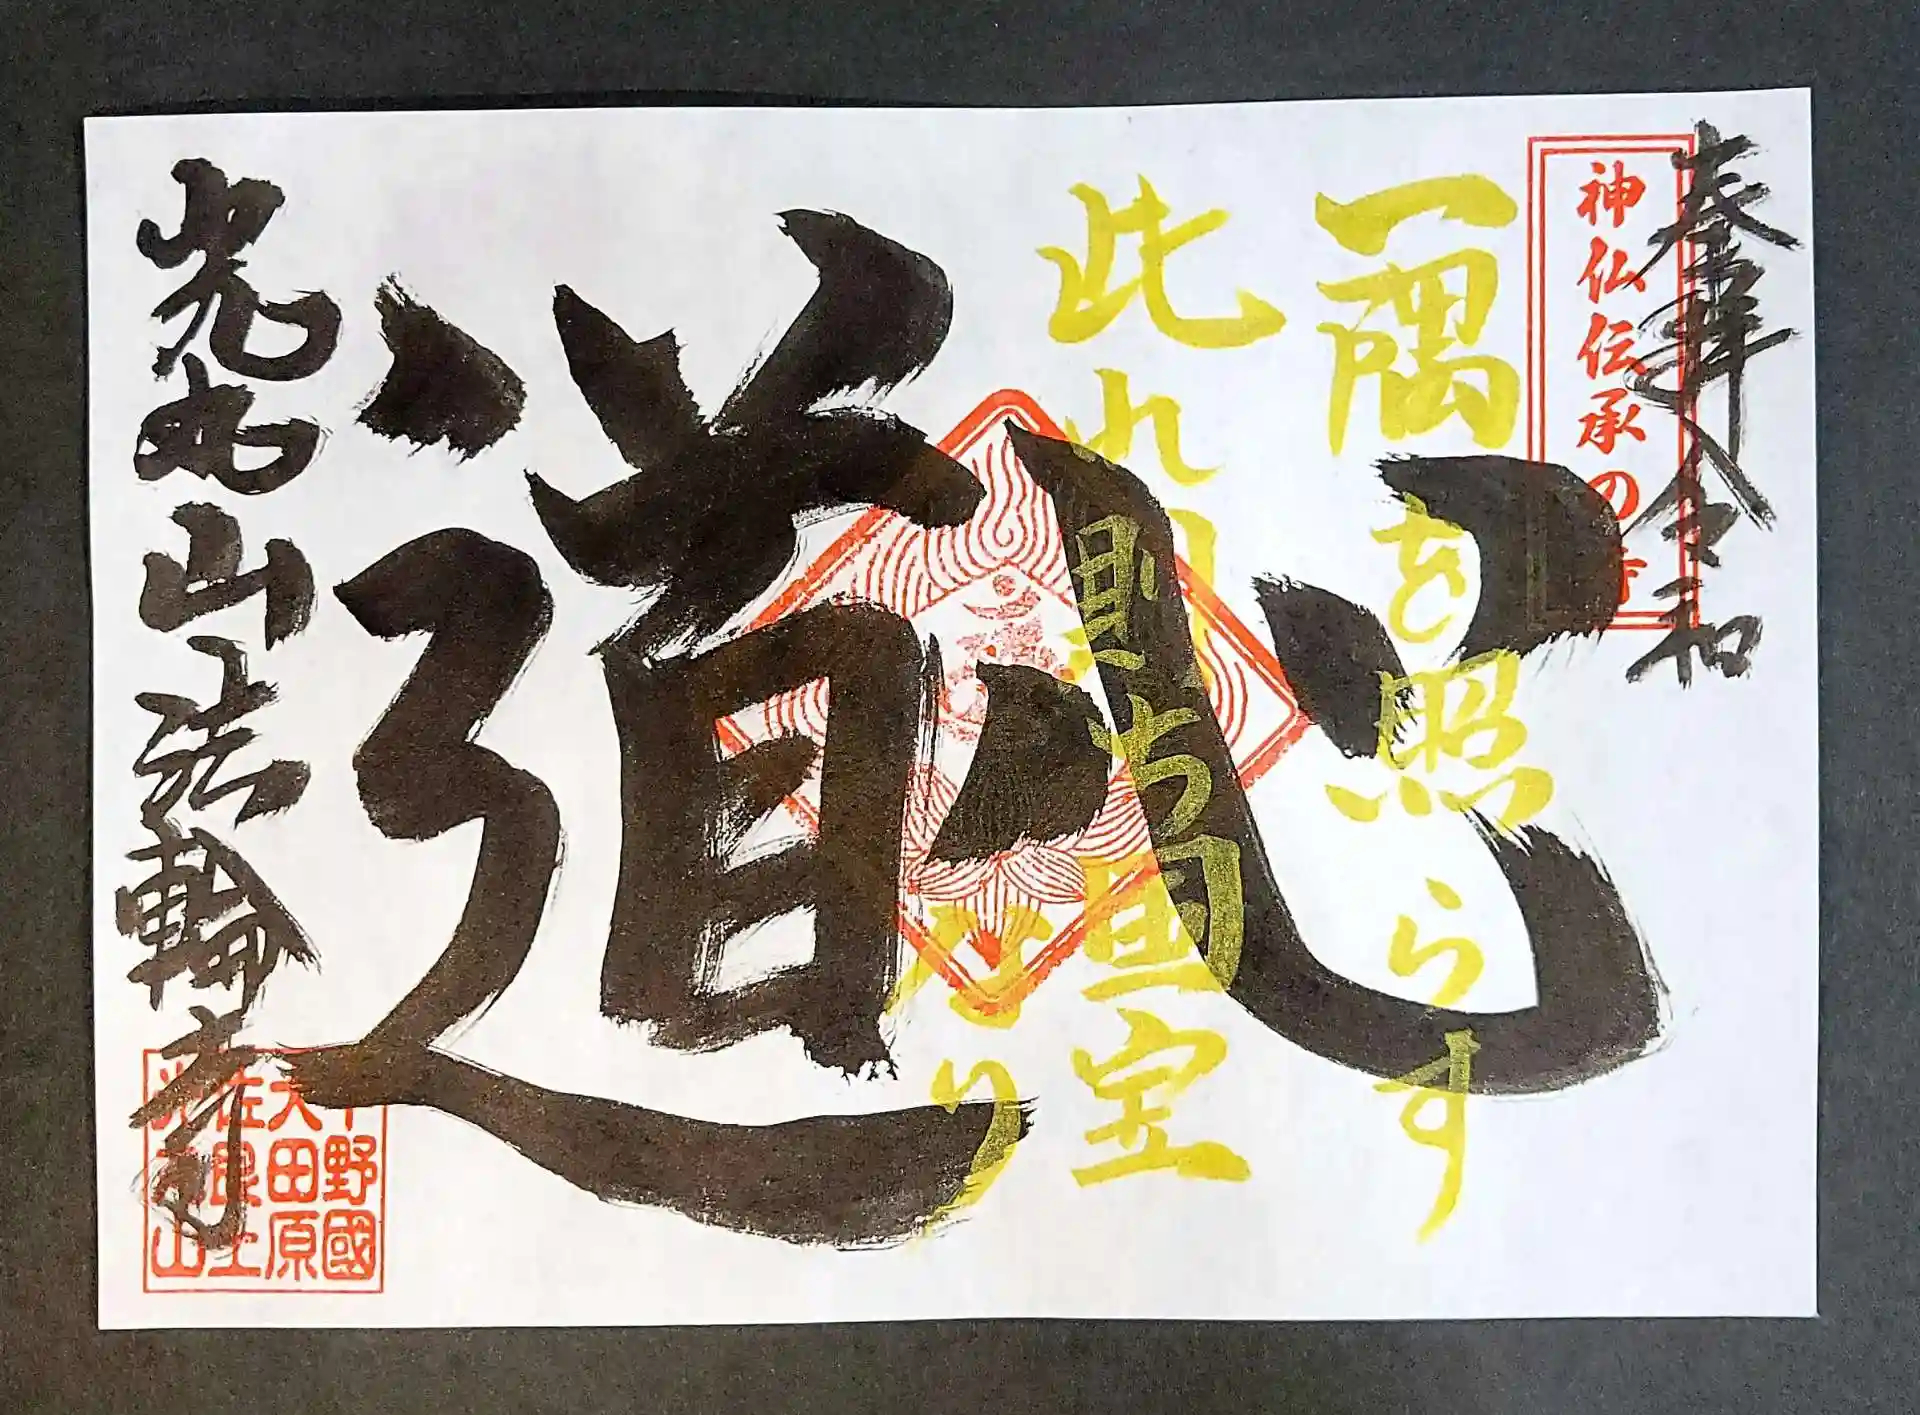 奉拝 令和
神仏伝承の寺
一隅を照らす
此れ則ち国宝
なり
道心
光丸山法輪寺
下野國
大田原
佐良土
光丸山